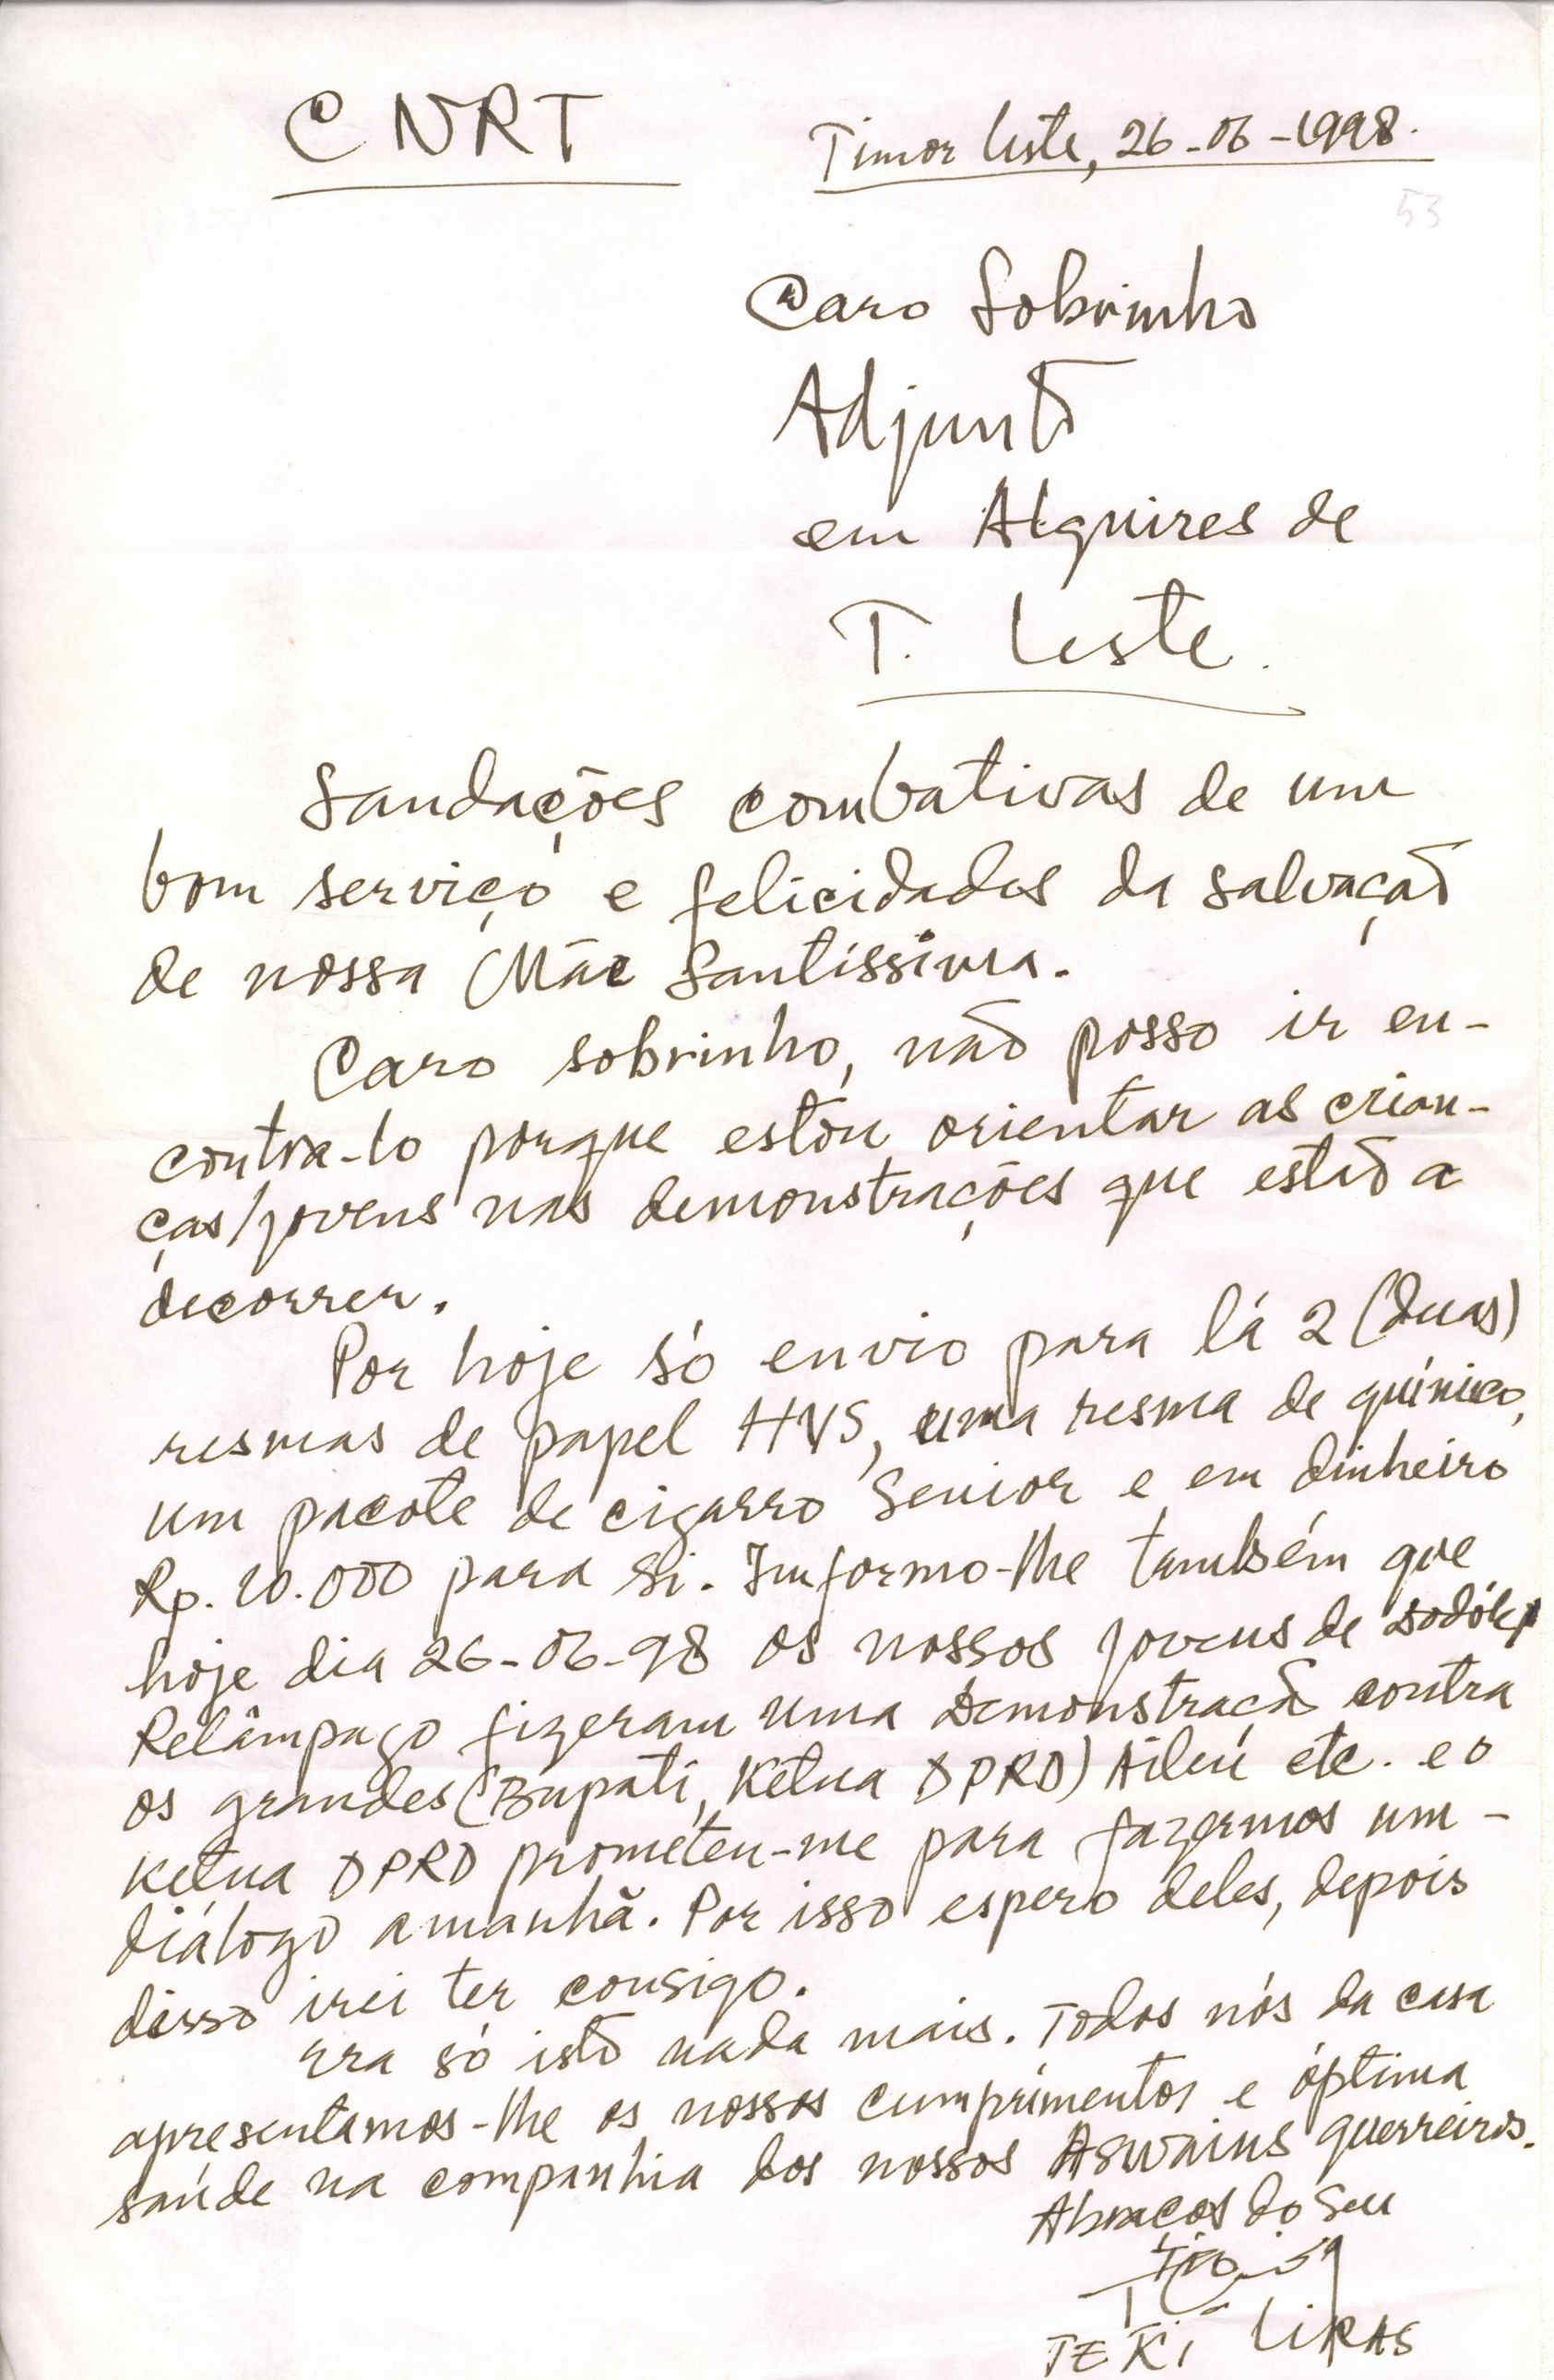 CNRT
Timor Leste, 26-06-1998.
53
Caro Sobrinho
Adjunto
em Alguires de
T. Leste.
Saudações combativas de um
bom serviço e felicidades da salvação
de nossa Mãe Santíssima.
Caro sobrinho, não posso ir en-
contra-lo porque estou orientar as crian-
ças/jovens nas demonstrações que estão a
decorrer.
Por hoje só envio para lá 2 (duas)
resmas de papel HVS, uma resma de químico,
um pacote de cigarro Senior e em dinheiro
Rp. 10.000 para si. Informo-lhe também que
hoje dia 26-06-98 os nossos jovens de
Relâmpago fizeram uma demonstração contra
os grandes (Bupati, Ketua DPRD) Aileu etc. e o
Ketua DPRD prometeu-me para fazermos um-
diálogo amanhã. Por isso espero deles, depois
disso irei ter consigo.
Era só isto nada mais. Todos nós da casa
apresentamos-lhe os nossos cumprimentos e óptima
saúde na companhia dos nossos Aswains guerreiros.
Abraços do seu
Tio
TEKI LIRAS